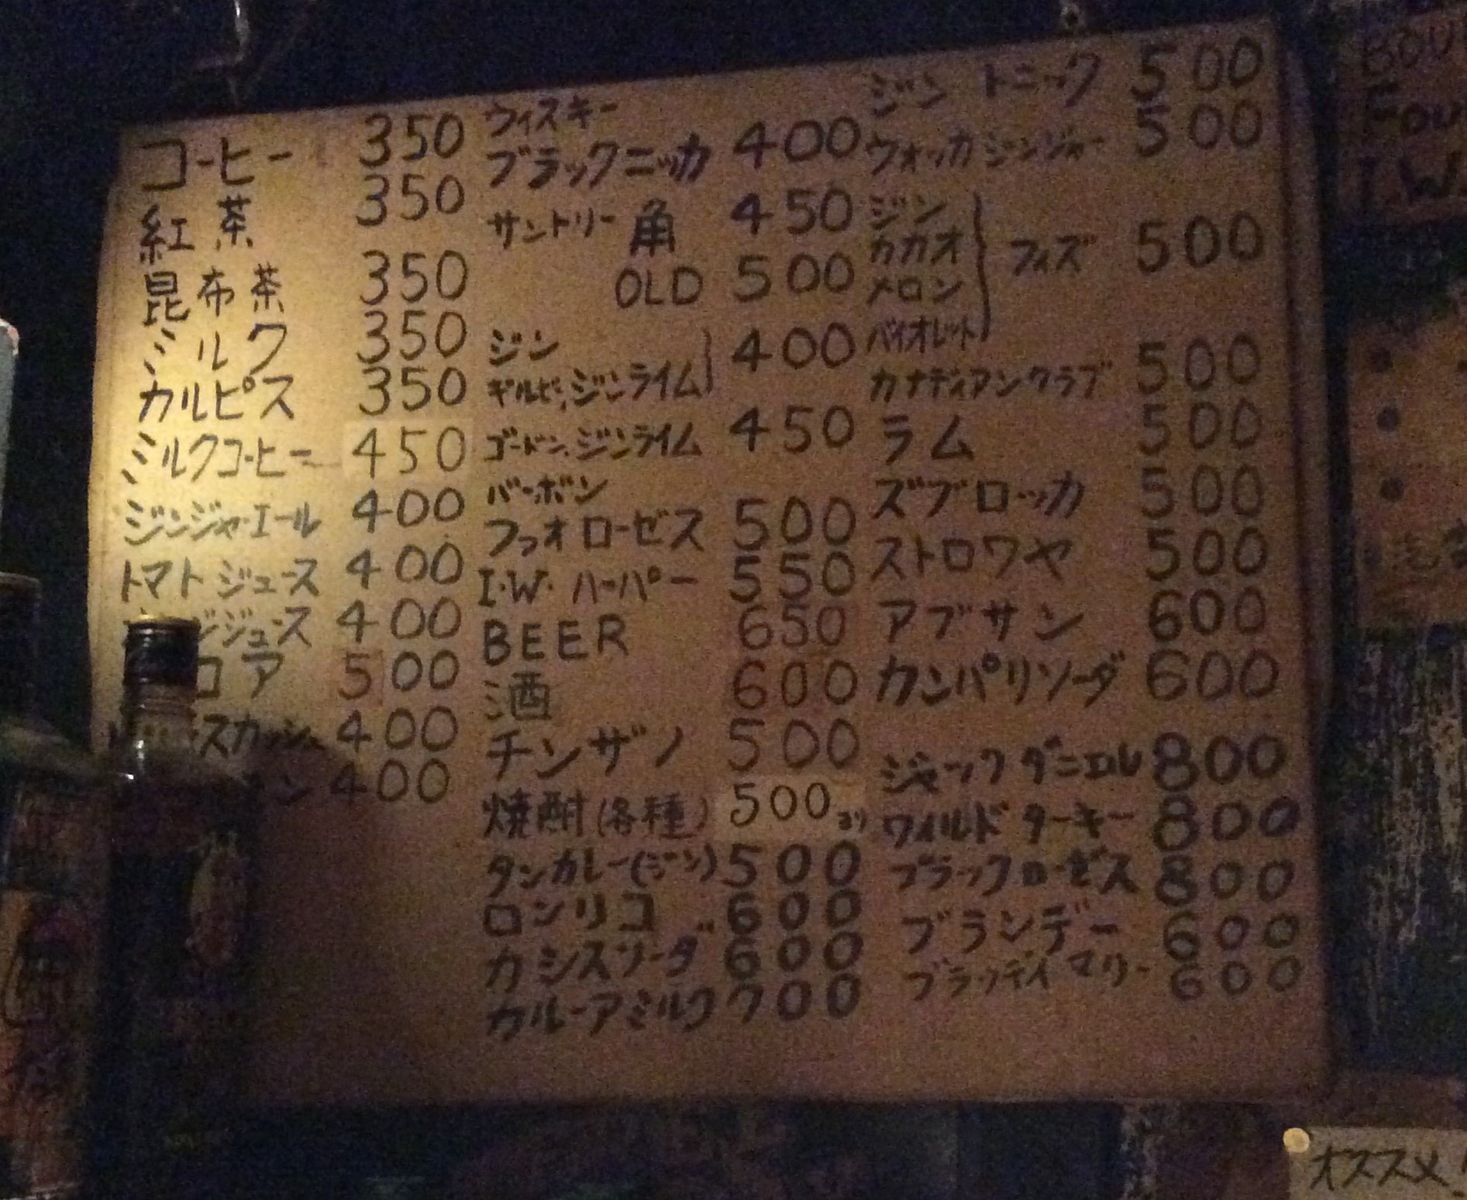 コーヒー 350
紅茶 350
昆布茶 350
ミルク 350
カルピス 350
ミルクコーヒー 450
ジンジャーエール 400
トマトジュース 400
ジュース 400
コア 500
スカッシュ 400
ン 400
ウィスキー
ブラックニッカ 400
サントリー 角 450
OLD 500
ジン
ギルビー、ジンライム 400
ゴードン、ジンライム 450
バーボン
フォオローゼス 500
I.W.ハーパー 550
BEER 650
酒 600
チンザノ 500
焼酎(各種) 500ヨリ
タンカレー(ジン) 500
ロンリコ 600
カシスソーダ 600
カルーアミルク 700
ジントニック 500
ウォッカジンジャー 500
ジン
カカオ
メロン
バイオレット
フィズ 500
カナディアンクラブ 500
ラム 500
ズブロッカ 500
ストロワヤ 500
アブサン 600
カンパリソーダ 600
ジャックダニエル 800
ワイルドターキー 800
ブラックローゼス 800
ブランデー 600
ブラッディマリー 600
BOU
Fou
I.W
オススメ!